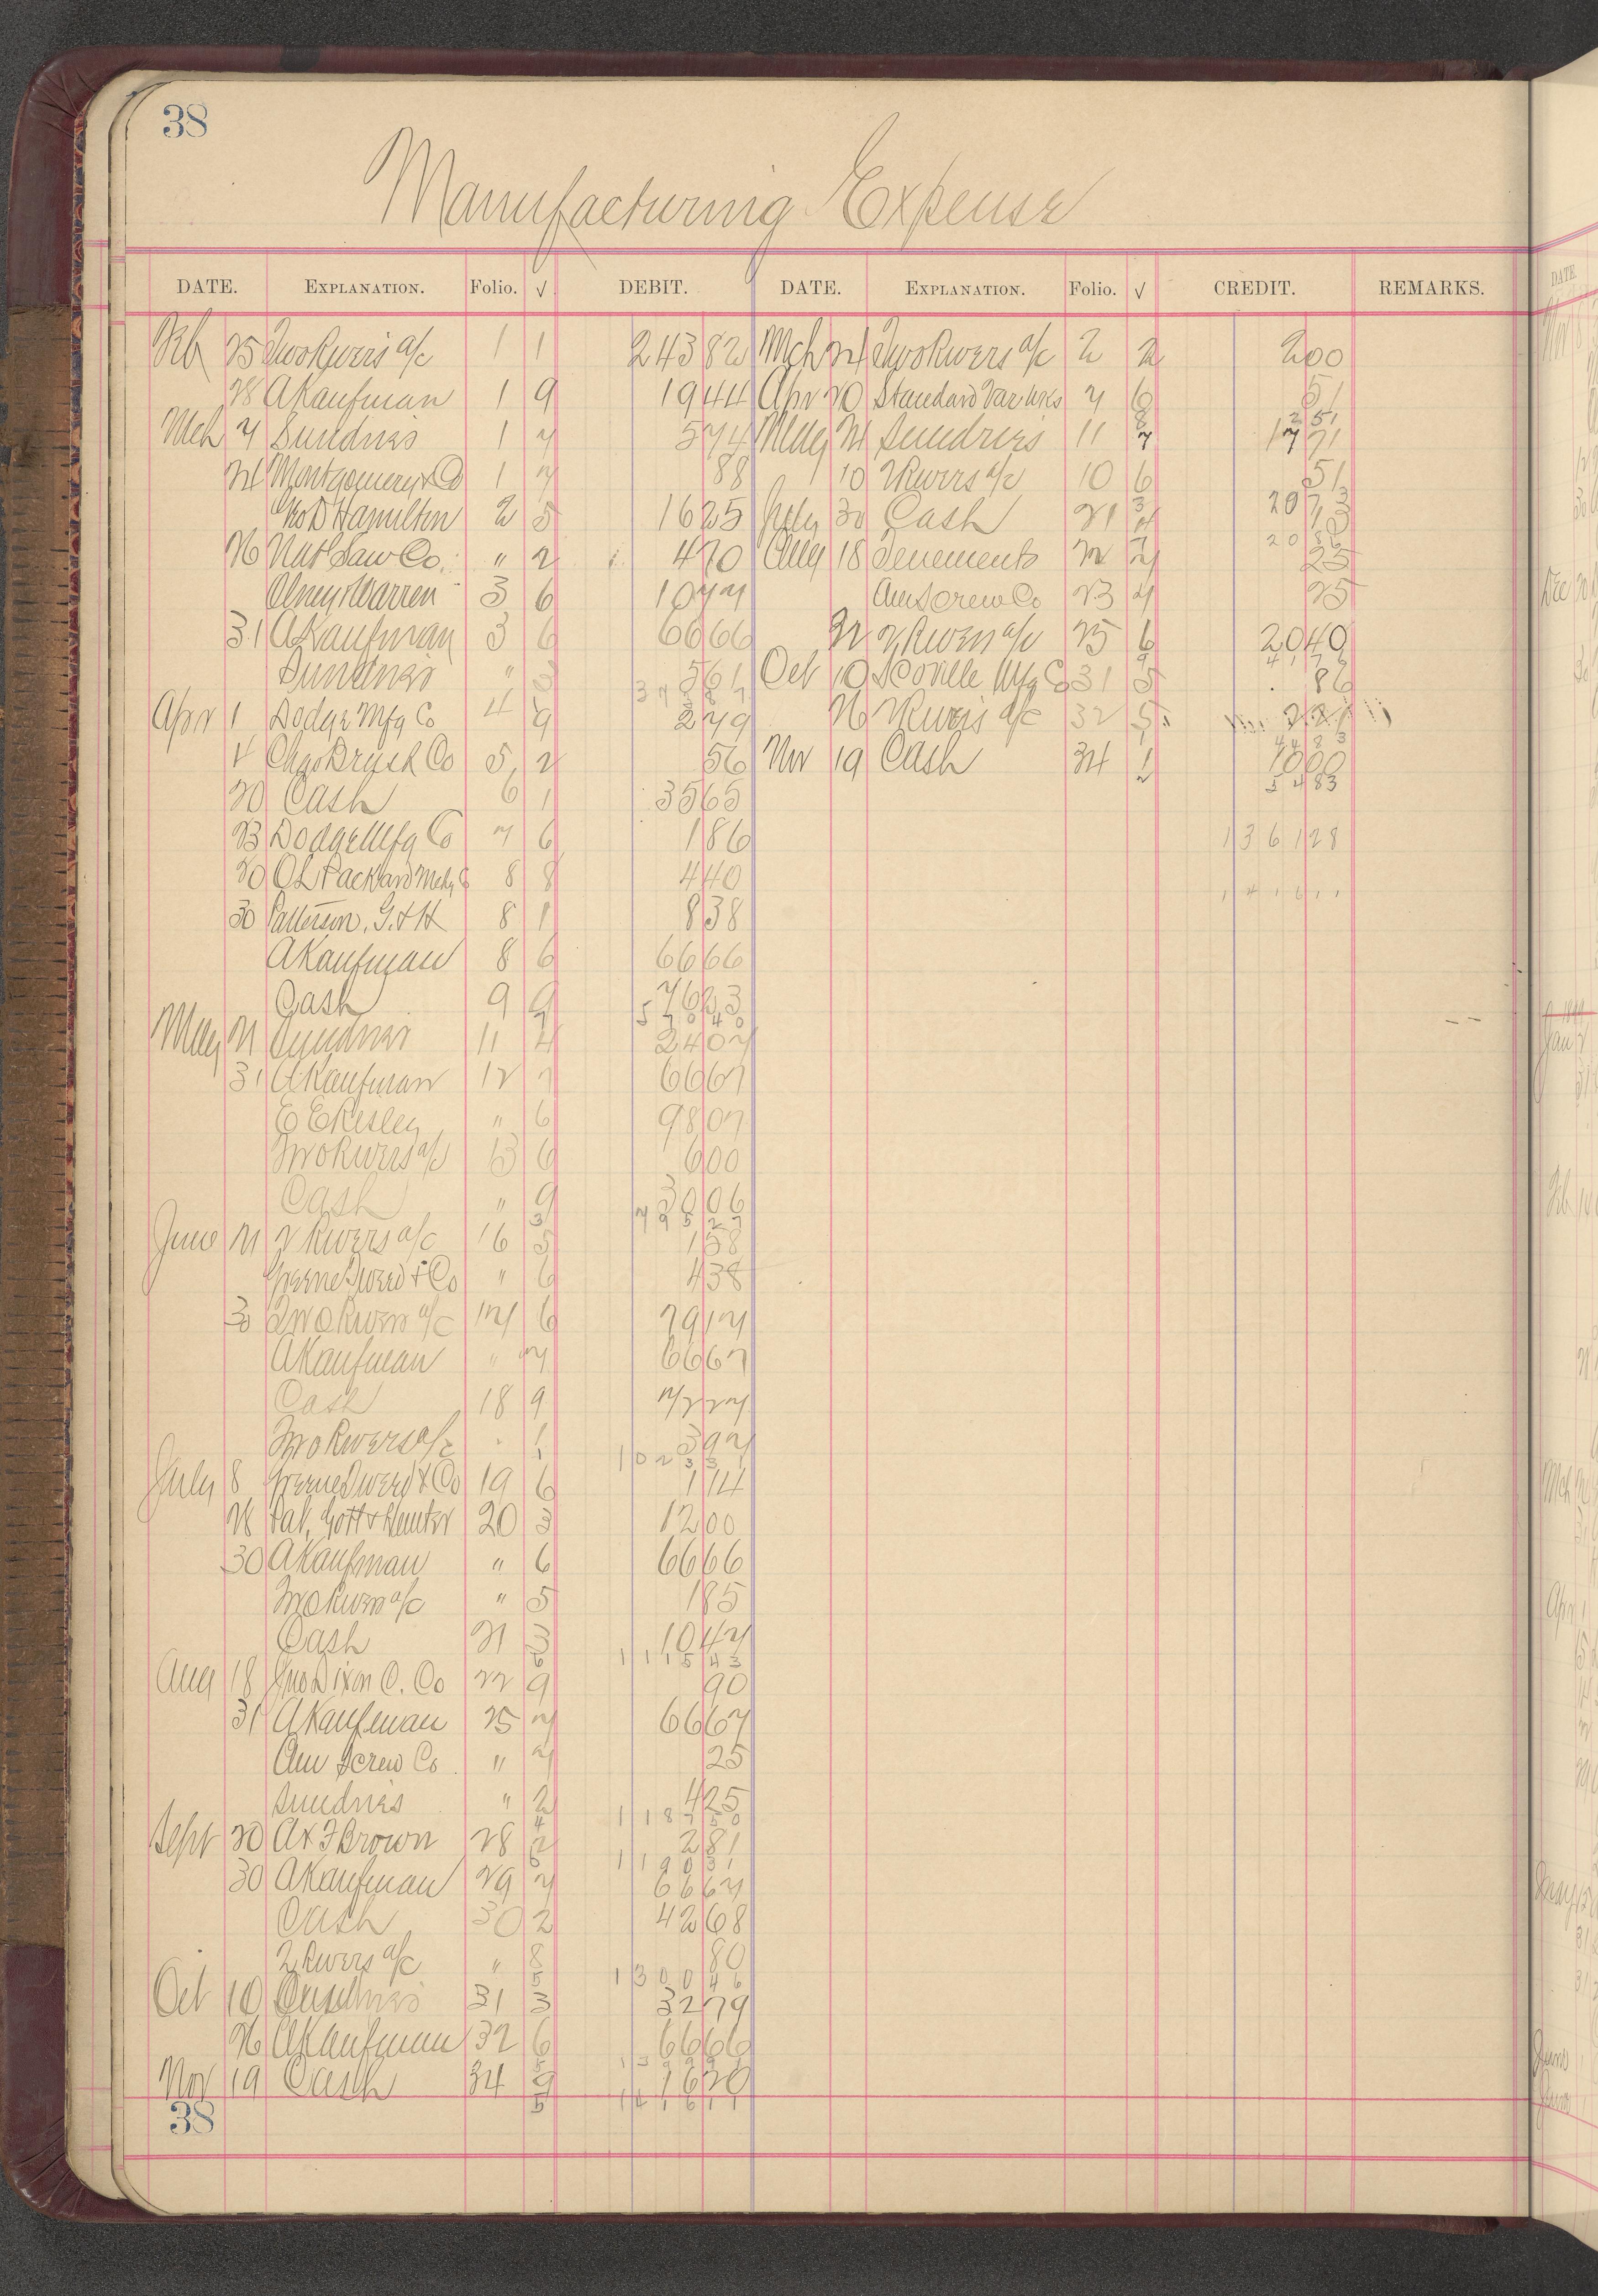 38
Manufacturing Expense
DATE. EXPLANATION. Folio. √ DEBIT. DATE. EXPLANATION. Folio. √ CREDIT. REMARKS.
Feb 25 Two Rivers a/c 1 1 243 82 Mch 21 Two Rivers a/c 2 2 2 00
28 A Kaufman 1 9 19 44 Apr 20 Standard Var Wks 7 6 51
2 51
Mch 7 Sundries 1 7 5 74 May 21 Sundries 11 7 17 71
21 Montgomery & Co 1 7 88 10 2 Rivers a/c 10 6 51
20 73
Geo D Hamilton 2 5 16 25 July 30 Cash 21 13
20 86
26 Nat Saw Co. " 2 4 70 Aug 18 Tenements 22 7 25
Olney & Warren 3 6 10 77 Am Screw Co 23 7 25
31 A Kaufman 3 6 66 66 31 2 Rivers a/c 25 6 20 40
41 76
Sundries " 3 5 61 Oct 10 Scoville Mfg Co 31 5 86
373 87
Apr 1 Dodge Mfg Co 4 9 2 79 26 2 Rivers a/c 32 5 2 21
44 83
4 Chas Brush Co 5 2 56 Nov 19 Cash 34 1 10 00
54 83
20 Cash 6 1 35 65
23 Dodge Mfg Co 7 6 1 86 1361 28
20 O L Packard Mchy Co 8 8 4 40
1416 11
30 Patterson, G. & H 8 1 8 38
A Kaufman 8 6 66 66
Cash 9 9 76 23
570 40
May 21 Sundries 11 4 24 07
31 A Kaufman 12 7 66 67
E E Risley " 6 98 07
Two Rivers a/c 13 6 6 00
Cash " 9 30 06
795 27
June 21 2 Rivers a/c 16 5 1 58
Greene Tweed & Co " 6 4 38
30 Two Rivers a/c 17 6 79 17
A Kaufman " 7 66 67
Cash 18 9 72 27
Two Rivers a/c 1 3 97
1023 31
July 8 Greene Tweed & Co 19 6 1 14
28 Pat, Gott & Hunter 20 3 12 00
30 A Kaufman " 6 66 66
Two Rivers a/c " 5 1 85
Cash 21 3 10 47
1115 43
Aug 18 Jno Dixon C. Co 22 9 90
31 A Kaufman 25 7 66 67
Am Screw Co " 7 25
Sundries " 2 4 25
1187 50
Sept 20 A & F Brown 28 2 2 81
1190 31
30 A Kaufman 29 7 66 67
Cash 30 2 42 68
2 Rivers a/c " 8 80
1300 46
Oct 10 Sundries 31 3 32 79
26 A Kaufman 32 6 66 66
1399 91
Nov 19 Cash 34 9 16 20
1416 11
38